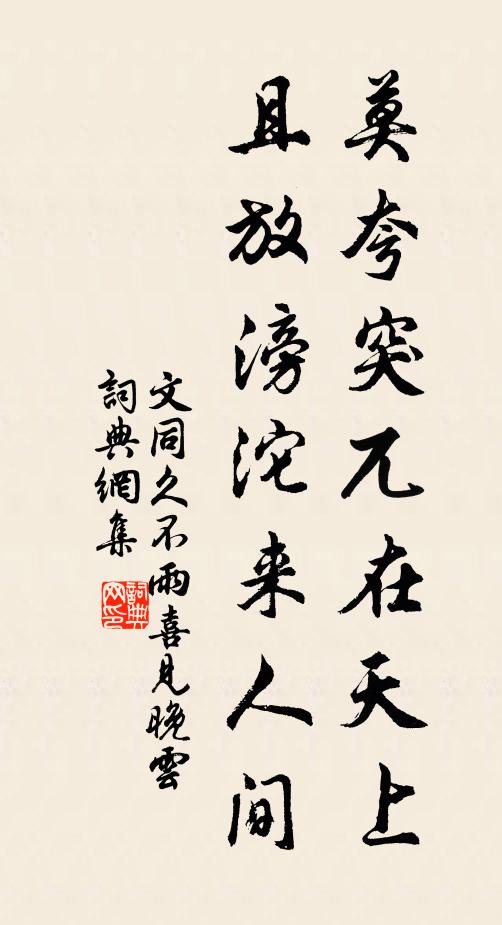 莫夸突兀在天上
且放滂沱来人间
文同久不雨喜見晚雲
詞典網集
詞典网印